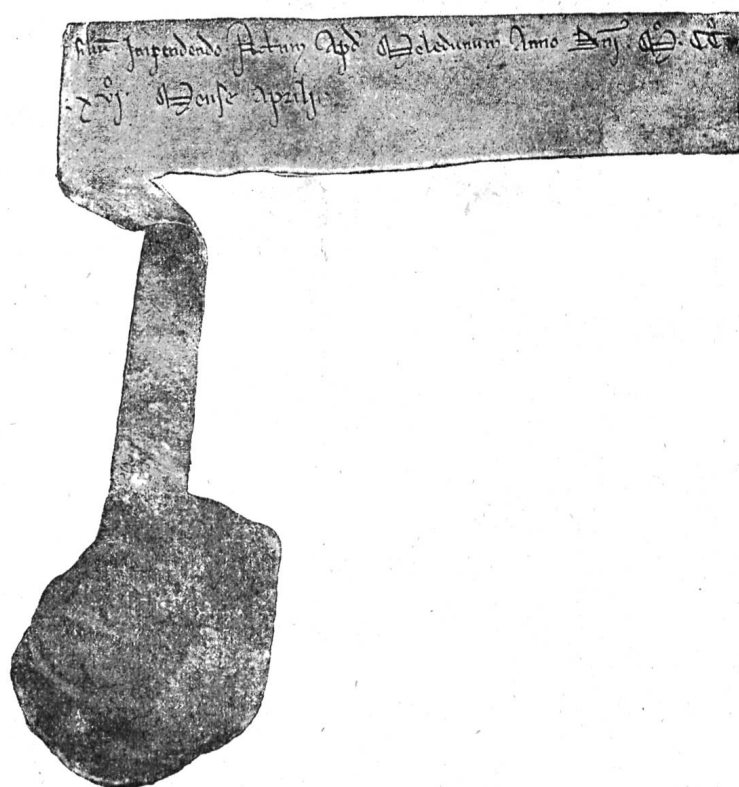 siliū Impendendo. Actum Apd̄ Meledunum Anno Dnj̄ . M̊ . CC̊
. xv̊j . Mense Aprilj .